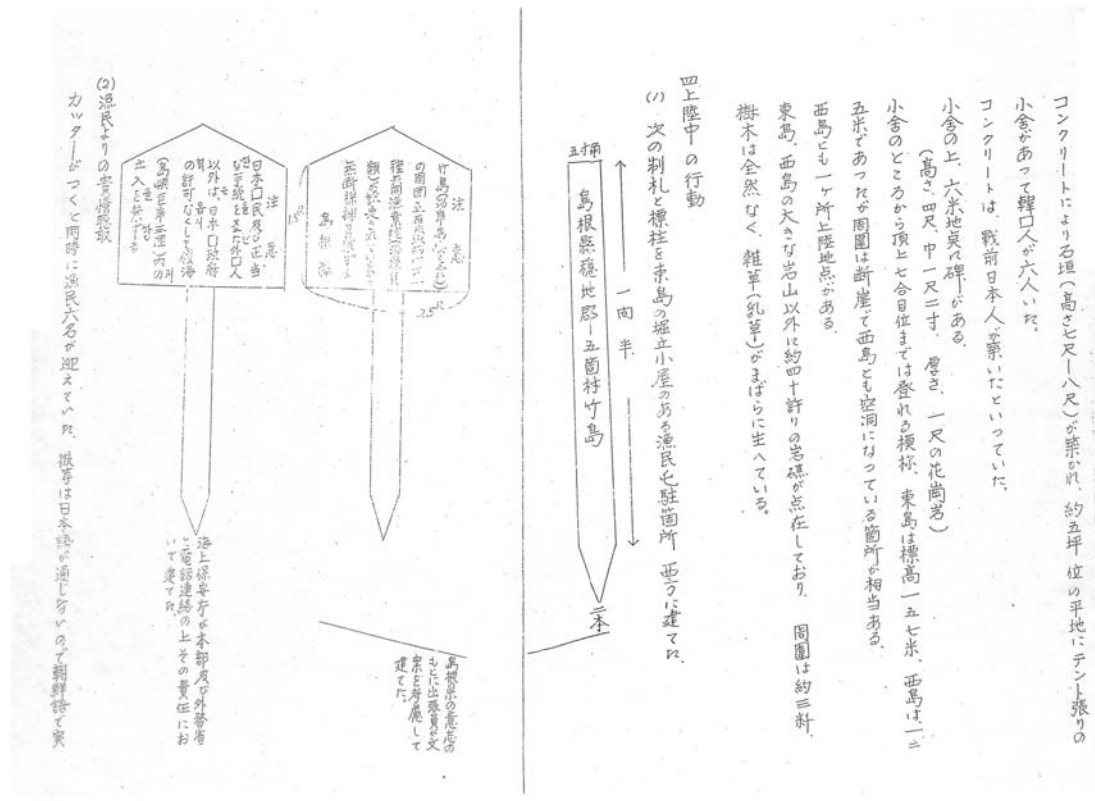 コンクリートにより石垣(高さ七尺ー八尺)が築かれ、約五坪位の平地にテント張りの
小舎があって韓口人が六人いた。
コンクリートは、戦前日本人が築いたといつていた。
小舎の上、六米地点に碑がある。
(高さ、四尺、巾一尺二寸、厚さ、一尺の花崗岩)
小舎のところから頂上七合目位までは登れる模様、東島は標高一五七米、西島は一二
五米であつたが周囲は断崖で西島とも空洞になつている箇所が相当ある。
西島にも一ヶ所上陸地点がある。
東島、西島の大きな岩山以外に約四十許りの岩礁が点在しており、周囲は約三粁
樹木は全然なく、雑草(乳草)がまばらに生へている。
四上陸中の行動
(1) 次の制札と標柱を東島の堀立小屋のある漁民屯駐箇所西方に建てた
五寸角
島根県穏地郡ー五箇村竹島
一間半
二本
注意
竹島
の周囲五百
島根県
島根県の意志の
もとに出張員が文
案を考慮して
建てた。
注意
日本口民及び正当
な手続を
外口人
以外は、日本口政府
の許可なくして領海
(島嶼
内の
立入を禁ずる
海上保安庁が本部及び外務省
と電話連絡の上その責任にお
いて建てた
(2) 漁民よりの実情聴取
カッターがつくと同時に漁民六名が迎えていた、彼等は日本語が通じないので朝鮮語で実